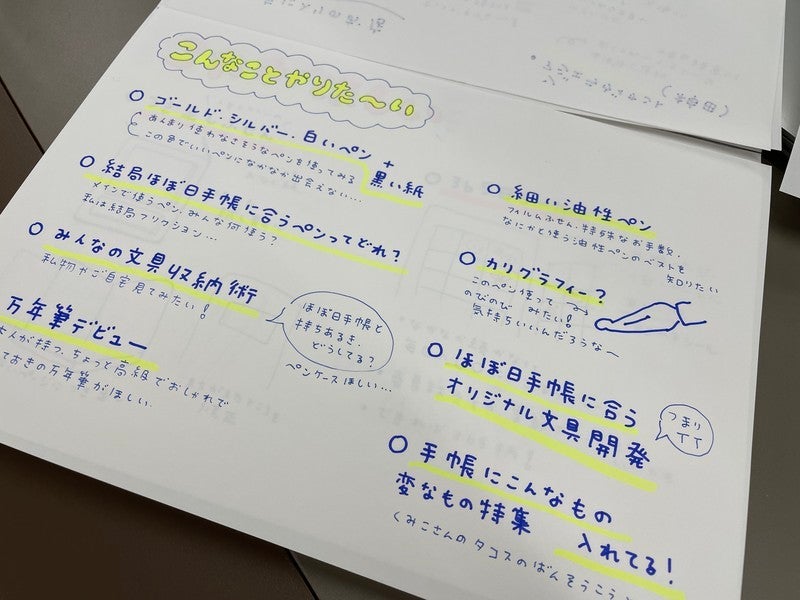 こんなことやりた〜い
○ ゴールド・シルバー・白いペン +
黒い紙
あんまり使わなさそうなペンを使ってみる
この色でいいペンになかなか出会えない…
○ 結局ほぼ日手帳に合うペンってどれ?
メインで使うペン、みんな何使う?
私は結局フリクション…
○ みんなの文具収納術
私物やご自宅見てみたい!
ほぼ日手帳と
持ちあるき、
どうしてる?
ペンケースほしい…
万年筆デビュー
大人が持つ、ちょっと高級でおしゃれで
ておきの万年筆がほしい
○ 細い油性ペン
フィルムふせん、特殊なお手数、
なにかと使う油性ペンのベストを
知りたい
○ カリグラフィー?
このペン使って
のびのび みたい!
気持ちいいんだろうな〜
○ ほぼ日手帳に合う
オリジナル文具開発
つまり
TT
○ 手帳にこんなもの
入れてる!
変なもの特集
(みこさんのタコスのばんそうこう